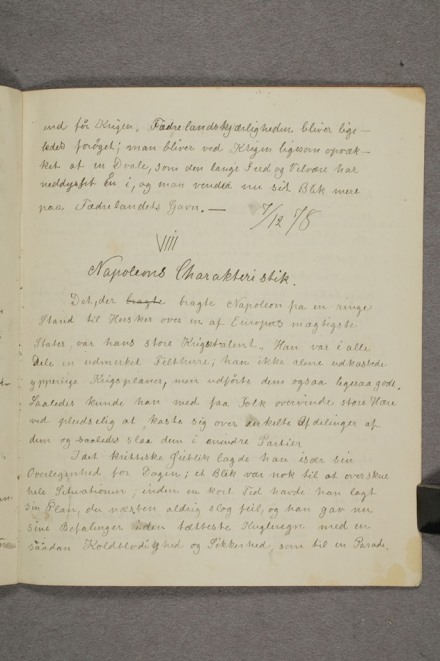 end før Krigen. Fædrelandskjærligheden bliver lige-
ledes forøget; man bliver ved Krigen ligesom opvæk-
ket af en Dvale, som den lange Fred og Velvære har
neddysset En i, og man vender nu sit Blik mere
paa Fædrelandets Gavn. —
7/12 78
VIII
Napoleons Charakteristik.
Det, der bragte bragte Napoleon fra en ringe
Stand til Hersker over en af Europas mægtigste
Stater, var hans store Krigstalent. Han var i alle
Dele en udmerket Feltherre; han ikke alene udkastede
ypperlige Krigsplaner, men udførte dem ogsaa ligesaa godt.
Saaledes kunde han med faa Folk overvinde store Hære
ved pludselig at kaste sig over enkelte Afdelinger af
dem og saaledes slaa dem i mindre Partier
I det kritiske Øieblik lagde han især sin
Overlegenhed for Dagen; et Blik var nok til at overskue
hele Situationen; inden en kort Tid havde han lagt
sin Plan, der næsten aldrig slog feil, og han gav nu
sine Befalinger i den tætteste Kugleregn med en
saadan Koldblodighed og Sikkerhed, som til en Parade.